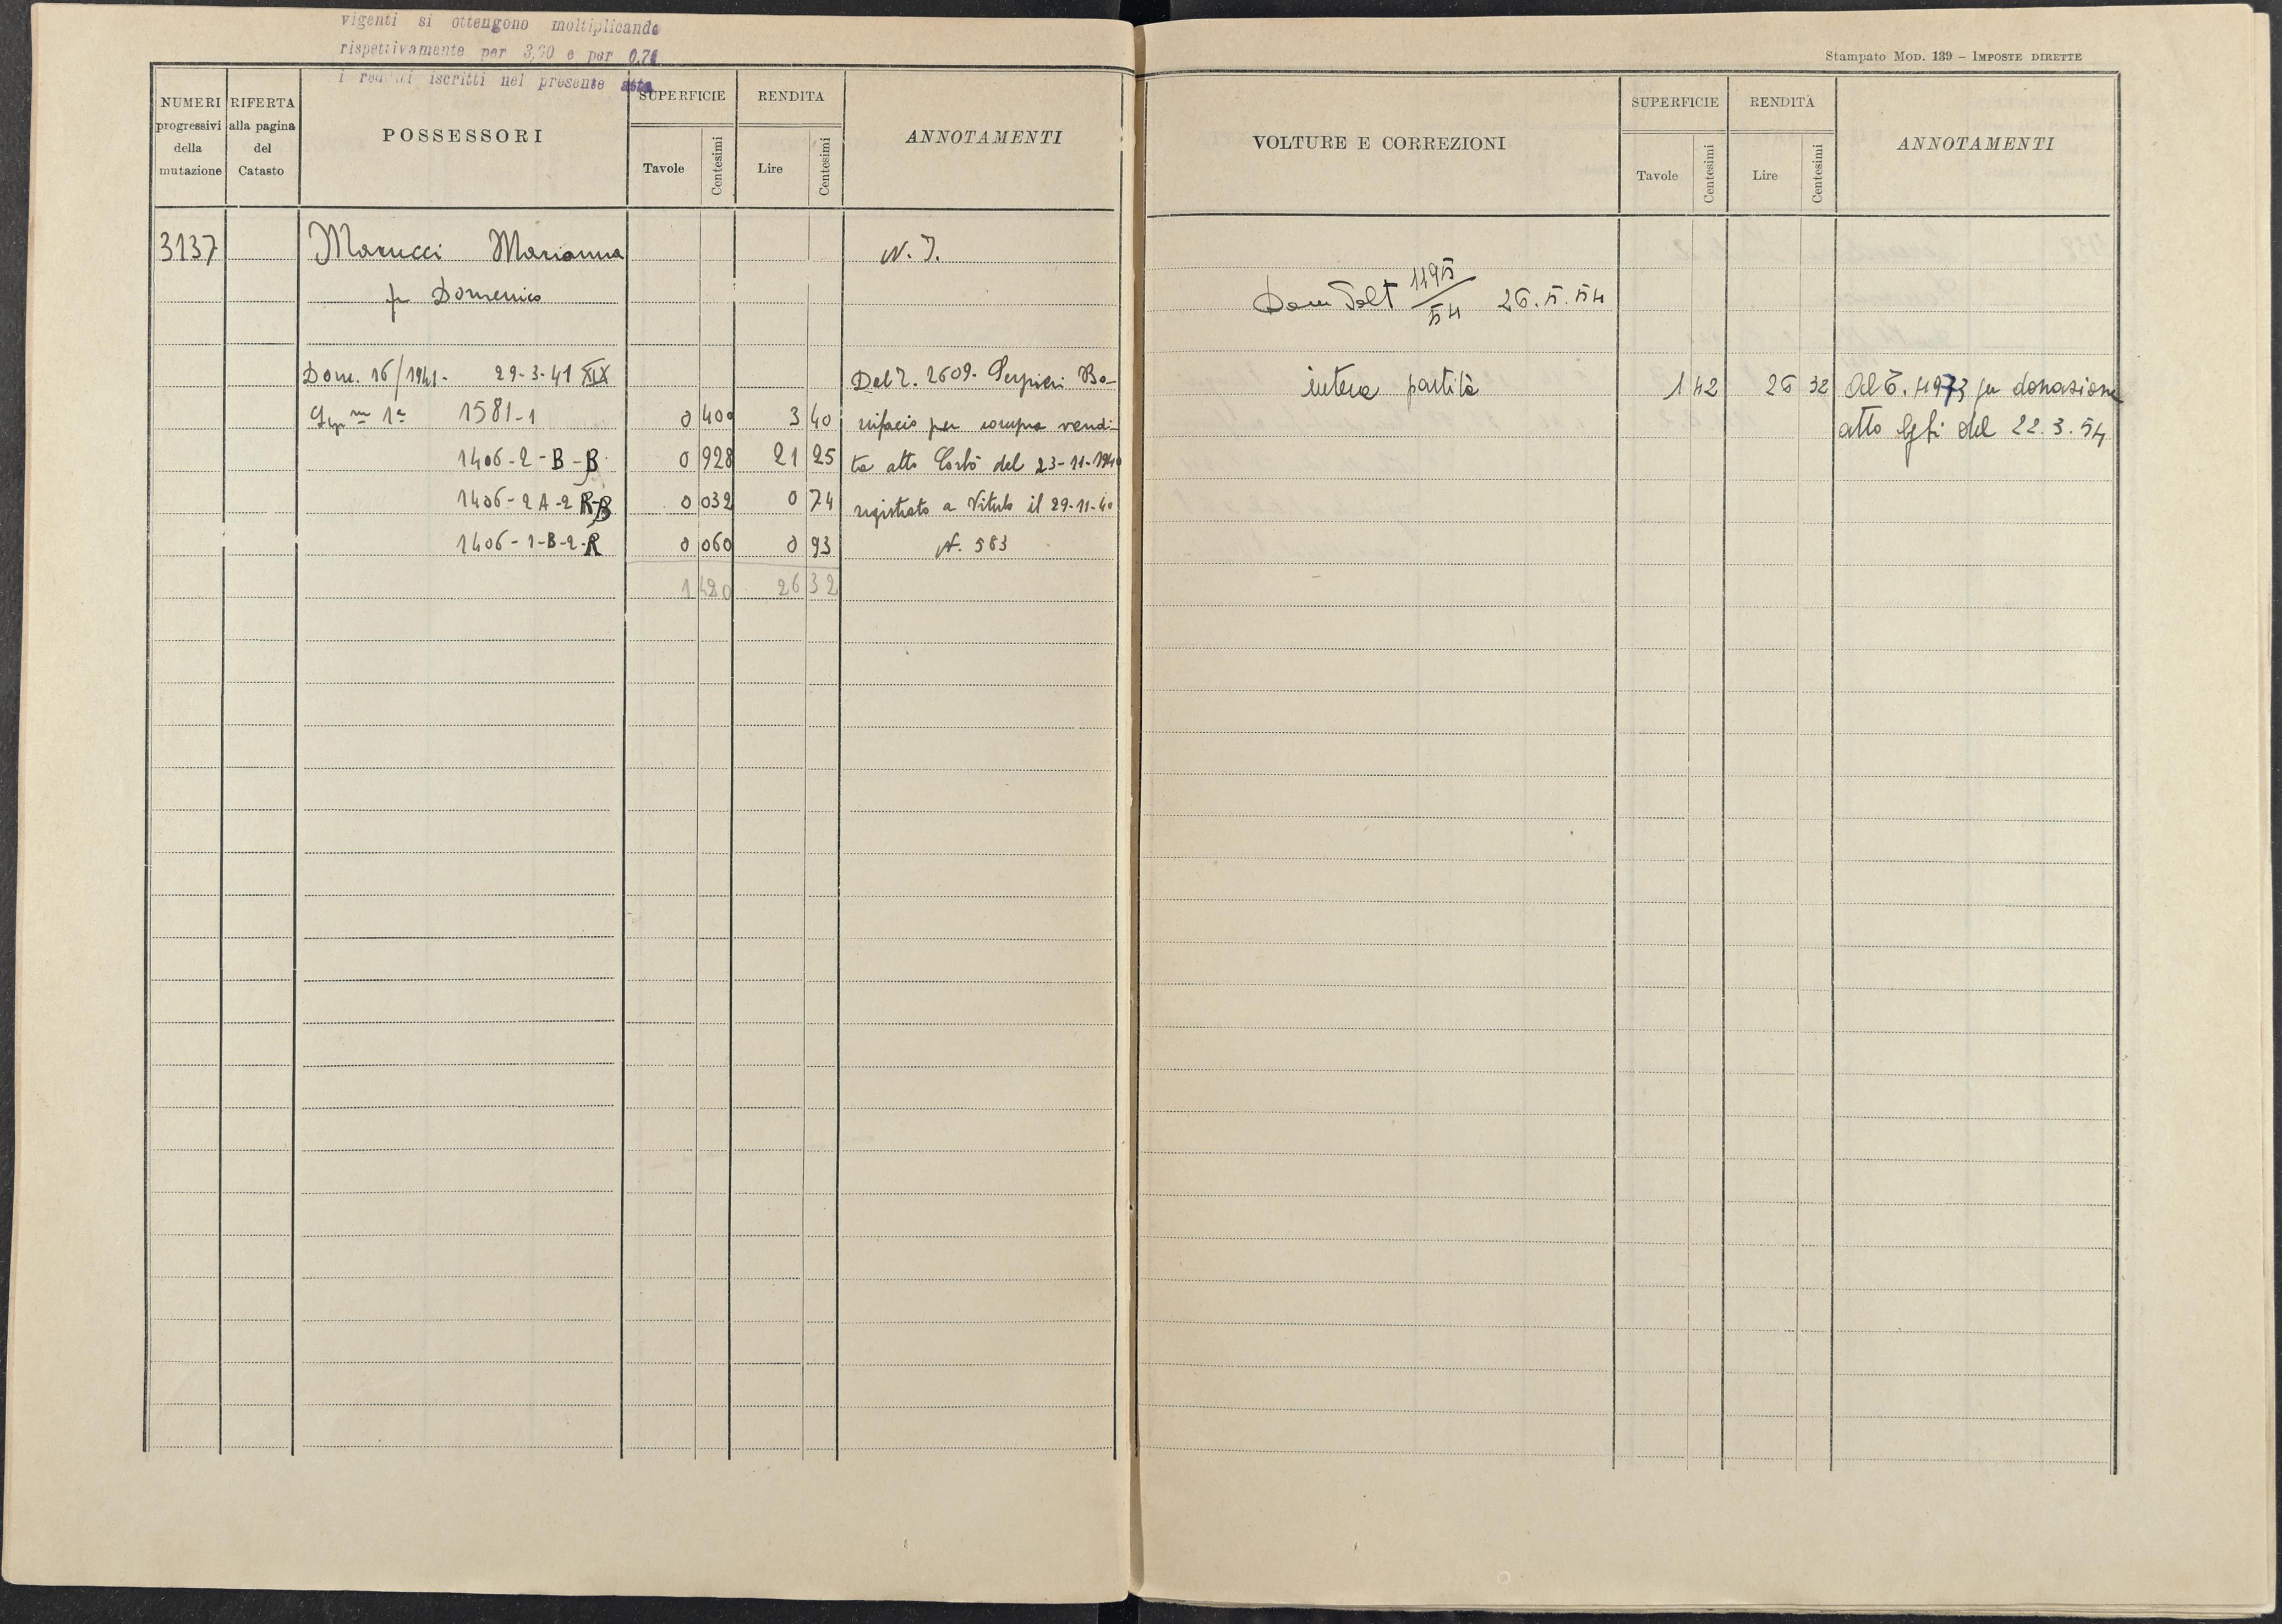 vigenti si ottengono moltiplicando
rispettivamente per 3,20 e per 0,71
i redditi iscritti nel presente atto
NUMERI progressivi della mutazione
RIFERTA alla pagina del Catasto
POSSESSORI
SUPERFICIE
Tavole Centesimi
RENDITA
Lire Centesimi
ANNOTAMENTI
3137 Marucci Marianna N. I.
fu Domenico
Dom. 16/1941 - 29-3-41 XIX Dal T. 2609. Serpieri Bo-
1ª 1581-1 0 400 3 40 nifacio per compra vendi-
1406-2-B-B 0 928 21 25 ta atto del 23-11-1940
1406-2A-2 R-B 0 032 0 74 registrato a Vitulo il 29-11-40
1406-1-B-2-R 0 060 0 93 N. 583
1 420 26 32
Stampato Mod. 139 - IMPOSTE DIRETTE
VOLTURE E CORREZIONI
SUPERFICIE
Tavole Centesimi
RENDITA
Lire Centesimi
ANNOTAMENTI
Dom Volt 1195/54 26.5.54
intera partita 1 42 26 32 Al T. 4973 per donazione
atto del 22.3.54